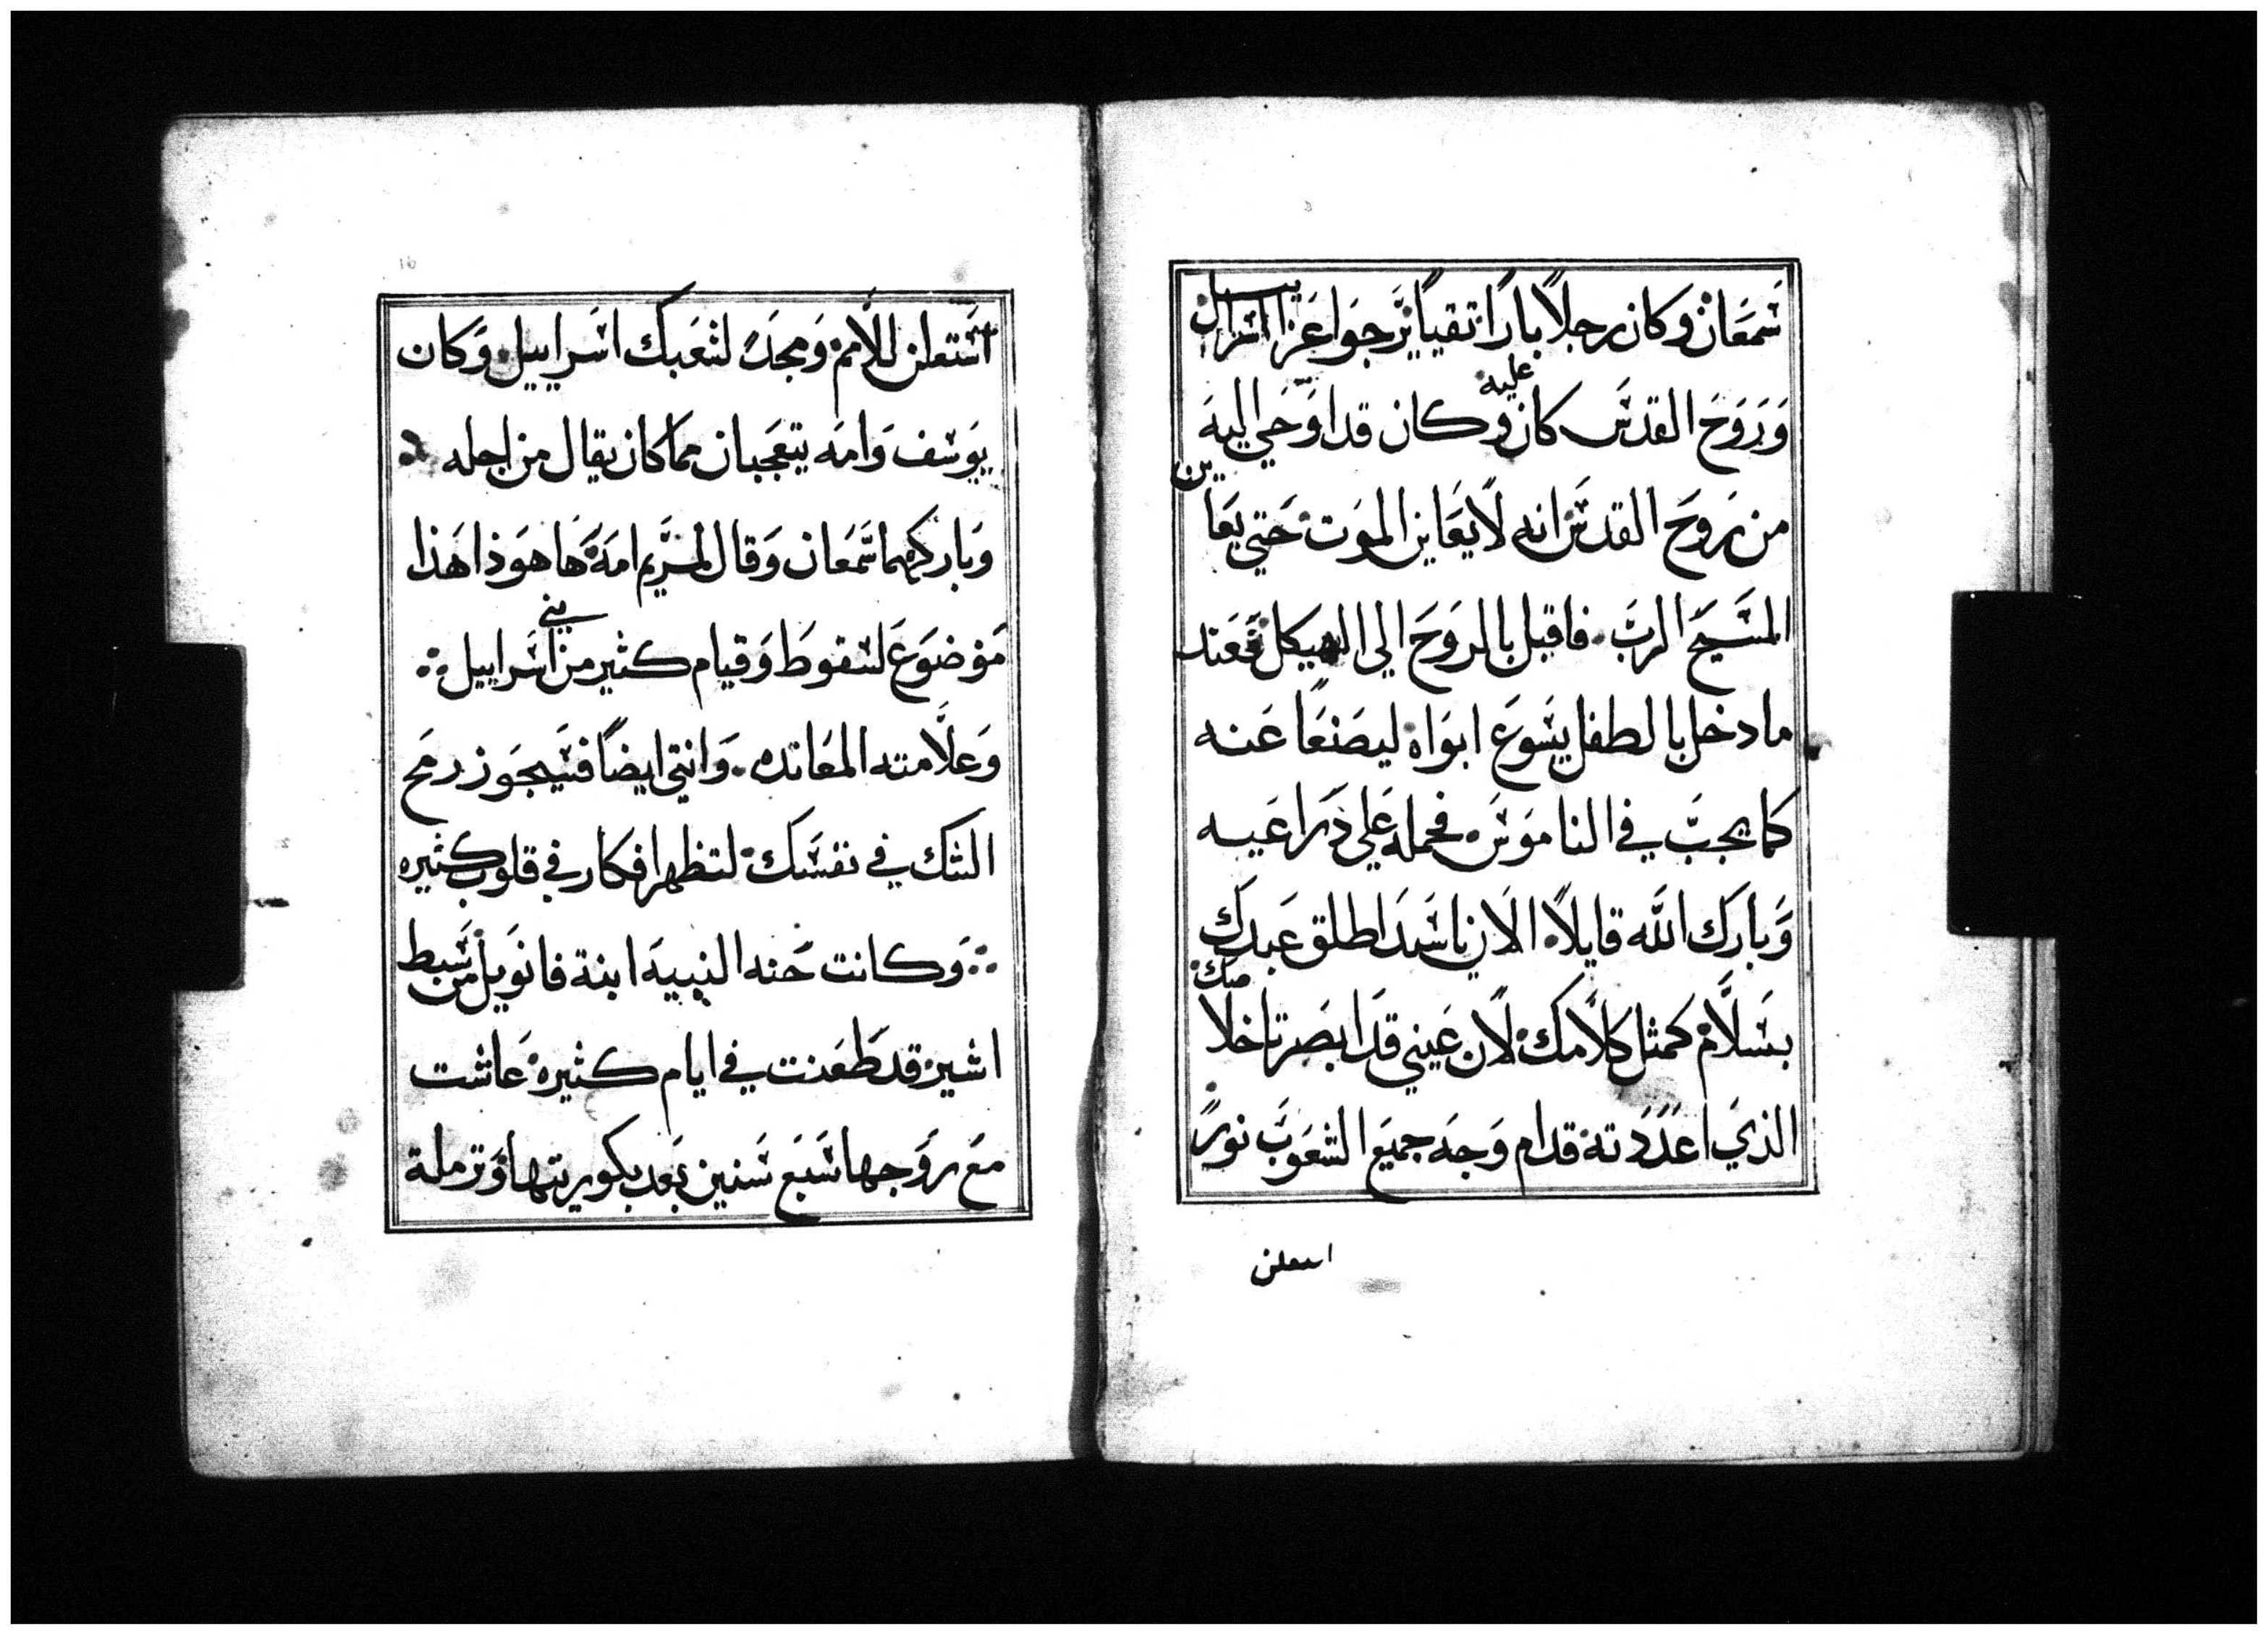 شمعان وكان رجلاً باراً تقياً يرجوا عزا اسراييل
وروح القدس كان عليه وكان قد اوحي اليه
من روح القدس انه لا يعاين الموت حتي يعاين
المسيح الرب فاقبل بالروح الي الهيكل فعند
ما دخل بالطفل يسوع ابواه ليصنعا عنه
كما يجب في الناموس فحمله علي ذراعيه
وبارك الله قايلاً الان ياسيد اطلق عبدك
بسلام كمثل كلامك لان عيني قد ابصرتا خلاصك
الذي اعددته قدام وجه جميع الشعوب نورً
استعلن
استعلن للامم ومجد لشعبك اسراييل وكان
يوسف وامه يتعجبان مما كان يقال من اجله
وباركهما شمعان وقال لمريم امه ها هوذا هذا
موضوع لسقوط وقيام كثير من بني اسراييل
وعلامته المعانده وانتي ايضاً فسيجوز رمح
الشك في نفسك لتظهر افكار في قلوب كثيره
وكانت حنه النبيه ابنة فانويل من سبط
اشير قد طعنت في ايام كثيره عاشت
مع زوجها سبع سنين بعد بكوريتها وترملة